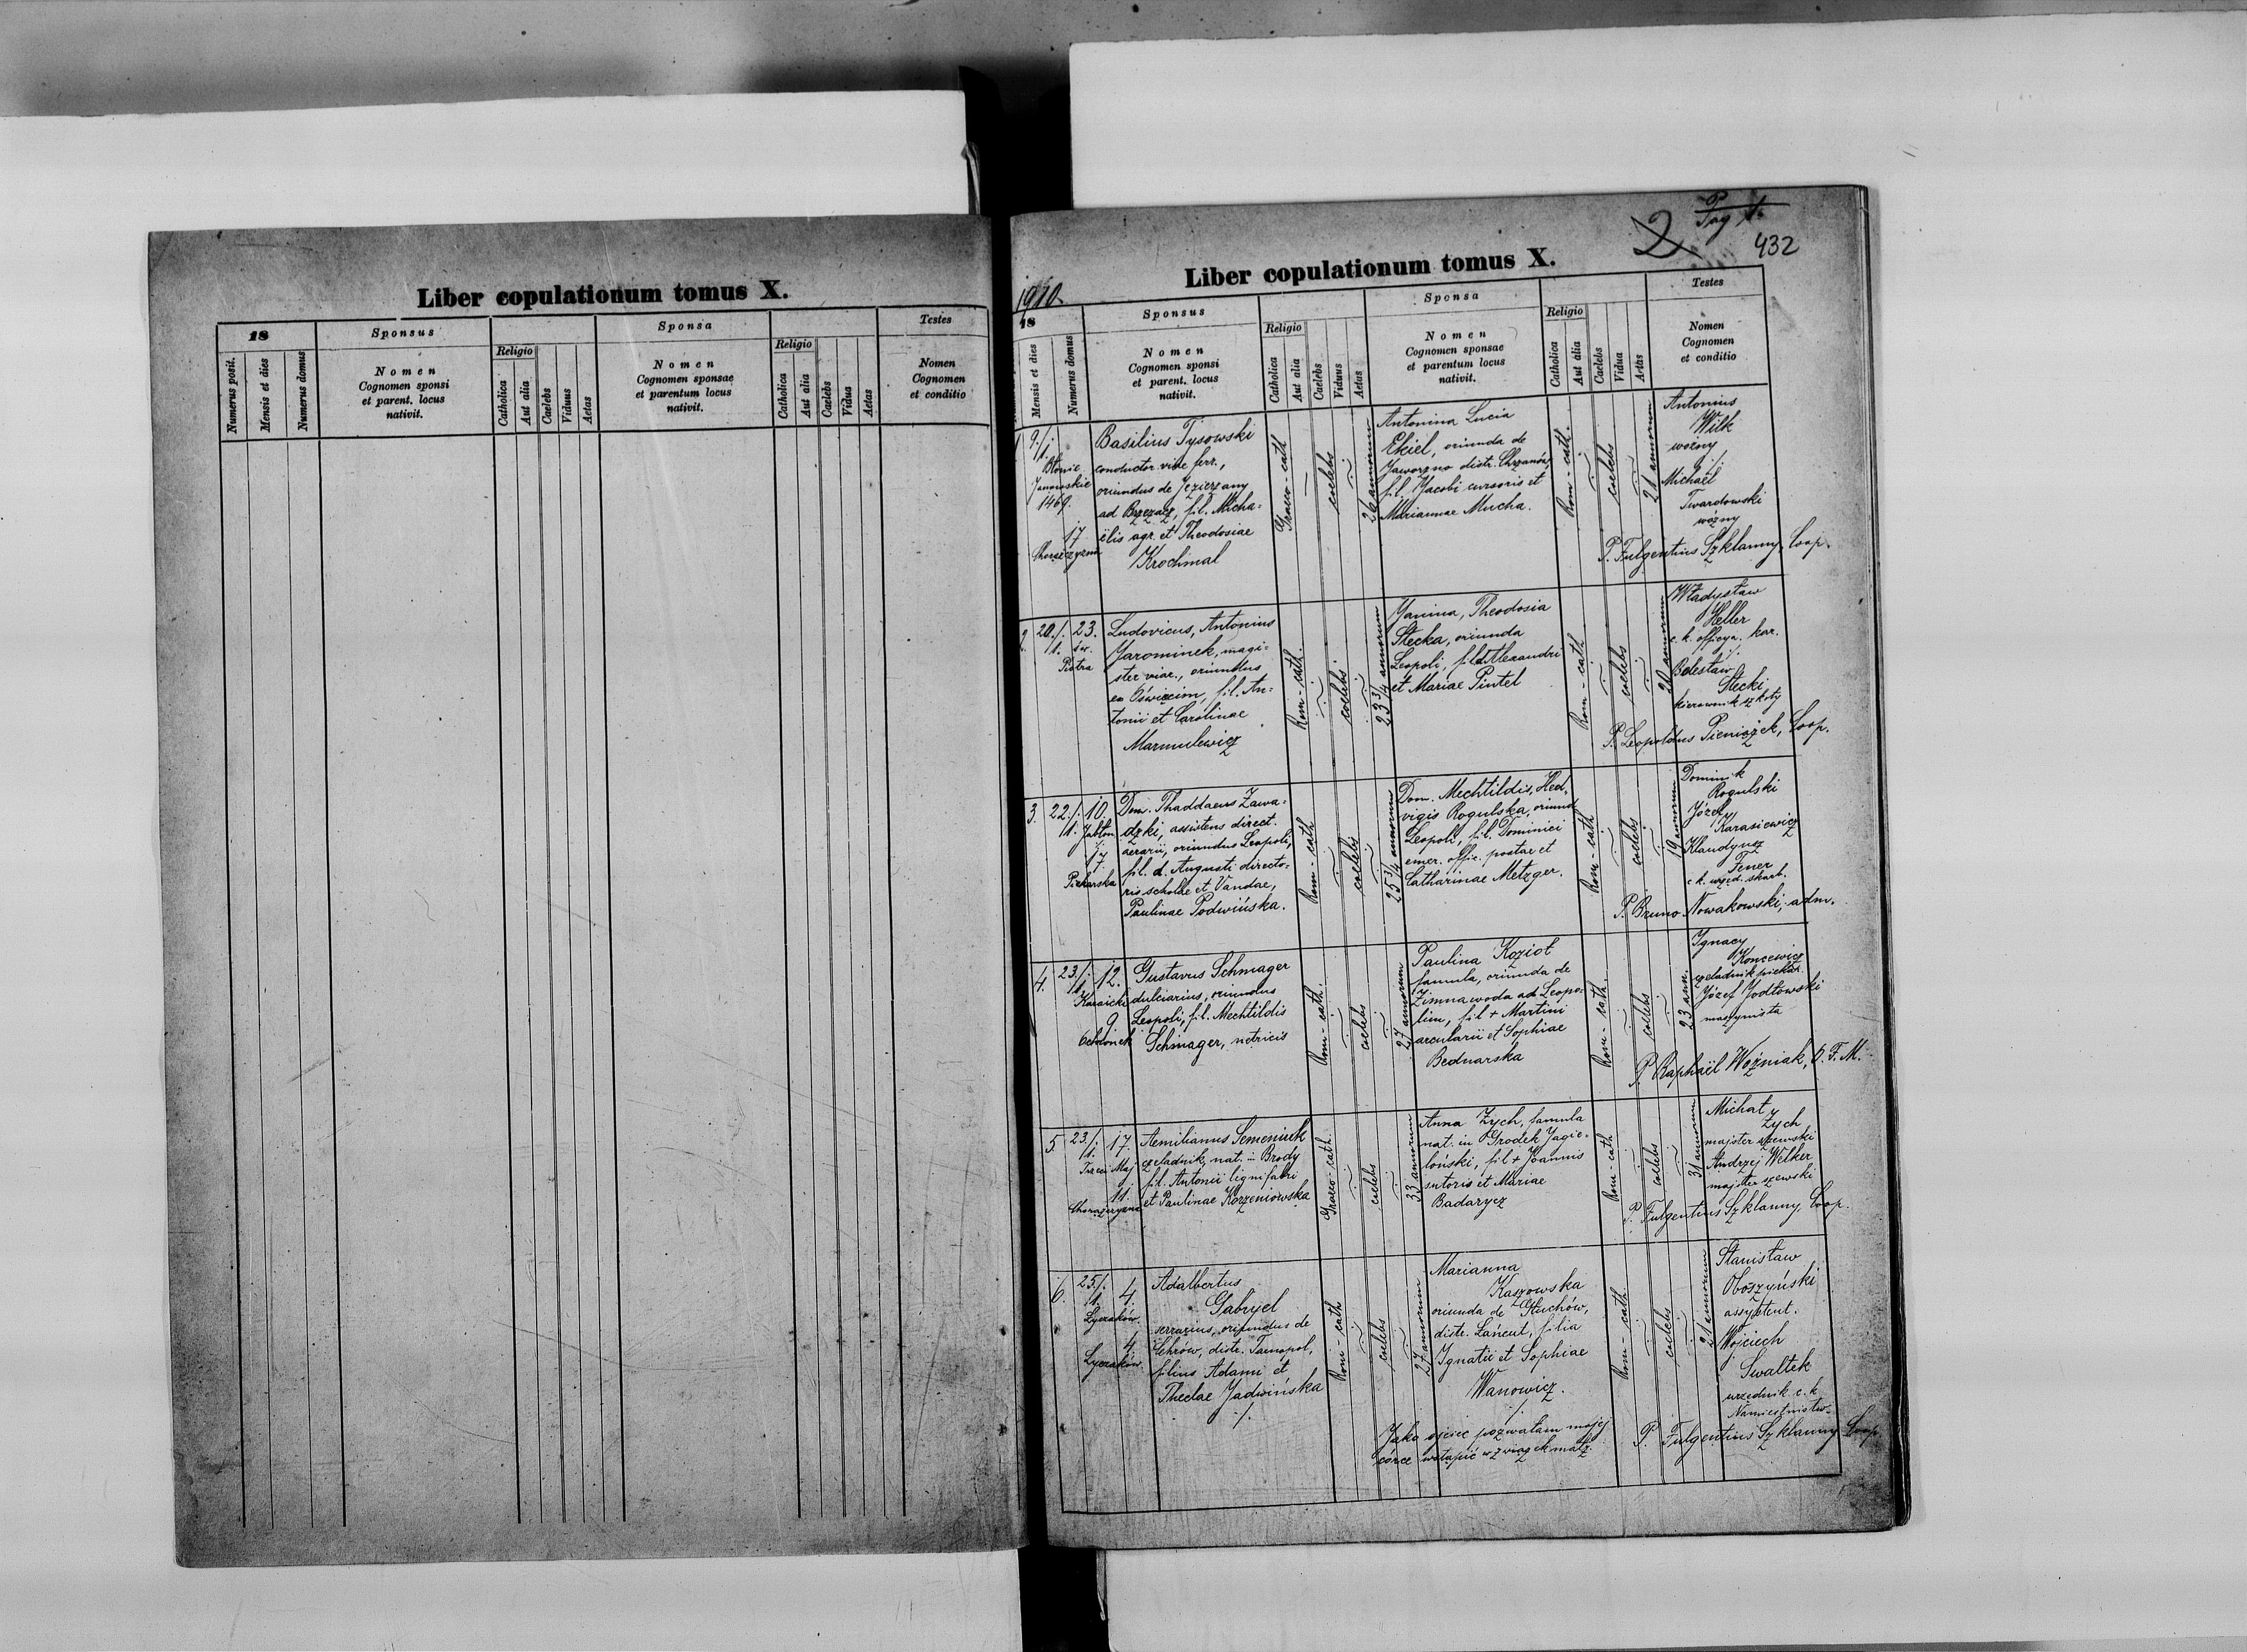 Liber copulationum tomus X.
18
Sponsus
Sponsa
Testes
Numerus posit.
Mensis et dies
Numerus domus
Nomen
Cognomen sponsi
et parent. locus
nativit.
Religio
Catholica
Aut alia
Caelebs
Viduus
Aetas
Nomen
Cognomen sponsae
et parentum locus
nativit.
Religio
Catholica
Aut alia
Caelebs
Vidua
Aetas
Nomen
Cognomen
et conditio
2
Pag 1.
432
Liber copulationum tomus X.
1910.
18
Sponsus
Sponsa
Testes
Mensis et dies
Numerus domus
Nomen
Cognomen sponsi
et parent. locus
nativit.
Religio
Catholica
Aut alia
Caelebs
Viduus
Aetas
Nomen
Cognomen sponsae
et parentum locus
nativit.
Religio
Catholica
Aut alia
Caelebs
Vidua
Aetas
Nomen
Cognomen
et conditio
1
9./1.
Błonie
Janowskie
1469.
17
Chorążczyzna
Basilius Tysowski
conductor viae ferr.,
oriundus de Jezierzany
ad , fil. Micha-
ëlis agr. et Theodosiae
Krochmal
Graeco-cath
caelebs
26 annorum
Antonina Lucia
Ekiel, oriunda de
Jaworzno distr. Chrzanów,
fil. Jacobi cursoris et
Mariannae Mucha.
Rom-cath.
caelebs
21 annorum
Antonius
Wilk
woźny
Michaël
Twardowski
woźny
P. Fulgentius Szklanny, Coop.
2.
20./1.
23.
św.
Piotra
Ludovicus, Antonius
Jarominek, magi-
ster viar., oriundus
ex Oświęcim, fil. An-
tonii et Carolinae
Marmulewicz
Rom-cath.
caelebs
23 3/4 annorum
Janina, Theodosia
Stecka, oriunda
Leopoli, fil. Alexandri
et Mariae Pintel
Rom-cath
caelebs
20 annorum
Władysław
Heller
c. k. oficyn. kar.
Bolesław
Stecki
kierownik szkoły
P. Leopoldus Pieniążek, Coop.
3.
22./1.
10.
Jabłon.
17
Piekarska
Dom. Thaddaeus Zawa-
dzki, assistens direct.
aerarii, oriundus Leopoli,
fil. d. Augusti directo-
ris scholae et Vandae,
Paulinae Podwińska.
Rom-cath
caelebs
25 3/4 annorum
Dom. Mechtildis, Hed-
vigis Rogulska, oriund.
Leopoli, fil. Dominici
emer. offic. postae et
Catharinae Metzger.
Rom-cath
caelebs
19 annorum
Dominik
Rogulski
Józef
Karasiewicz
Klaudyusz
Fener
c. k. urzęd. skarb.
P. Bruno Nowakowski, adm.
4.
23./1.
12.
Karaicka
9
Ochronek
Gustavus Schmager
dulciarius, oriundus
Leopoli, fil. Mechtildis
Schmager, netricis
Rom-cath.
caelebs
27 annorum
Paulina Kozioł
famula, oriunda de
Zimnawoda ad Leopo-
lim, fil + Martini
arcularii et Sophiae
Bednarska
Rom-cath.
caelebs
23 ann.
Ignacy
Koncewicz
czeladnik piekar.
Józef Jodłowski
maszynista
P. Raphaël Woźniak, O. F. M.
5.
23./1.
17.
Trzeci Maj
11.
Chorążczyzna
Aemilianus Semeniuck
czeladnik, nat. in Brody
fil. Antonii lignifabri
et Paulinae Korzeniowska
Graeco-cath.
caelebs
33 annorum
Anna Zych, famula
nat. in Grodek Jagie-
loński, fil + Joannis
sutoris et Mariae
Badarycz
Rom-cath
caelebs
31 annorum
Michał
Zych
majster szewski
Andrzej Welker
majster szewski
P. Fulgentius Szklanny, Coop.
6.
25./1.
4.
Łyczaków.
4.
Łyczaków.
Adalbertus
Gabryel
serrarius, oriundus de
, distr. Tarnopol,
filius Adami et
Theclae Jadwińska
Rom-cath
caelebs
27 annorum
Marianna
Kaszowska
oriunda de Głuchów,
distr. Łańcut, filia
Ignatii et Sophiae
Wanowicz.
Jako ojciec pozwalam mojej
córce wstąpić w związek małż.
Rom-cath
caelebs
21 annorum
Stanisław
Oboszyński
assystent.
Wojciech
Swaltek
urzędnik c. k
Namiestnictw.
P. Fulgentius Szklanny Coop.